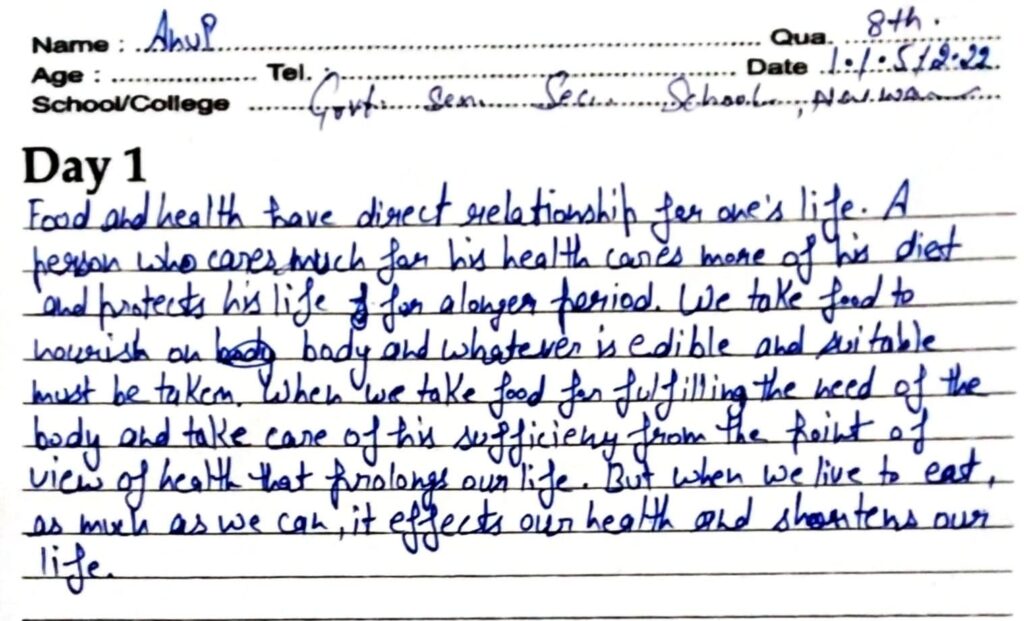 Name : Anup Qua. 8th.
Age : Tel. : Date 1.1.5/2.22
School/College Govt. Sen. Sec. School, Narwana
Day 1
Food and health have direct relationship for one's life. A
person who cares much for his health cares more of his diet
and protects his life for a longer period. We take food to
nourish on body and whatever is edible and suitable
must be taken. When we take food for fulfilling the need of the
body and take care of his sufficieny from the point of
view of health that prolongs our life. But when we live to east,
as much as we can, it effects our health and shortens our
life.